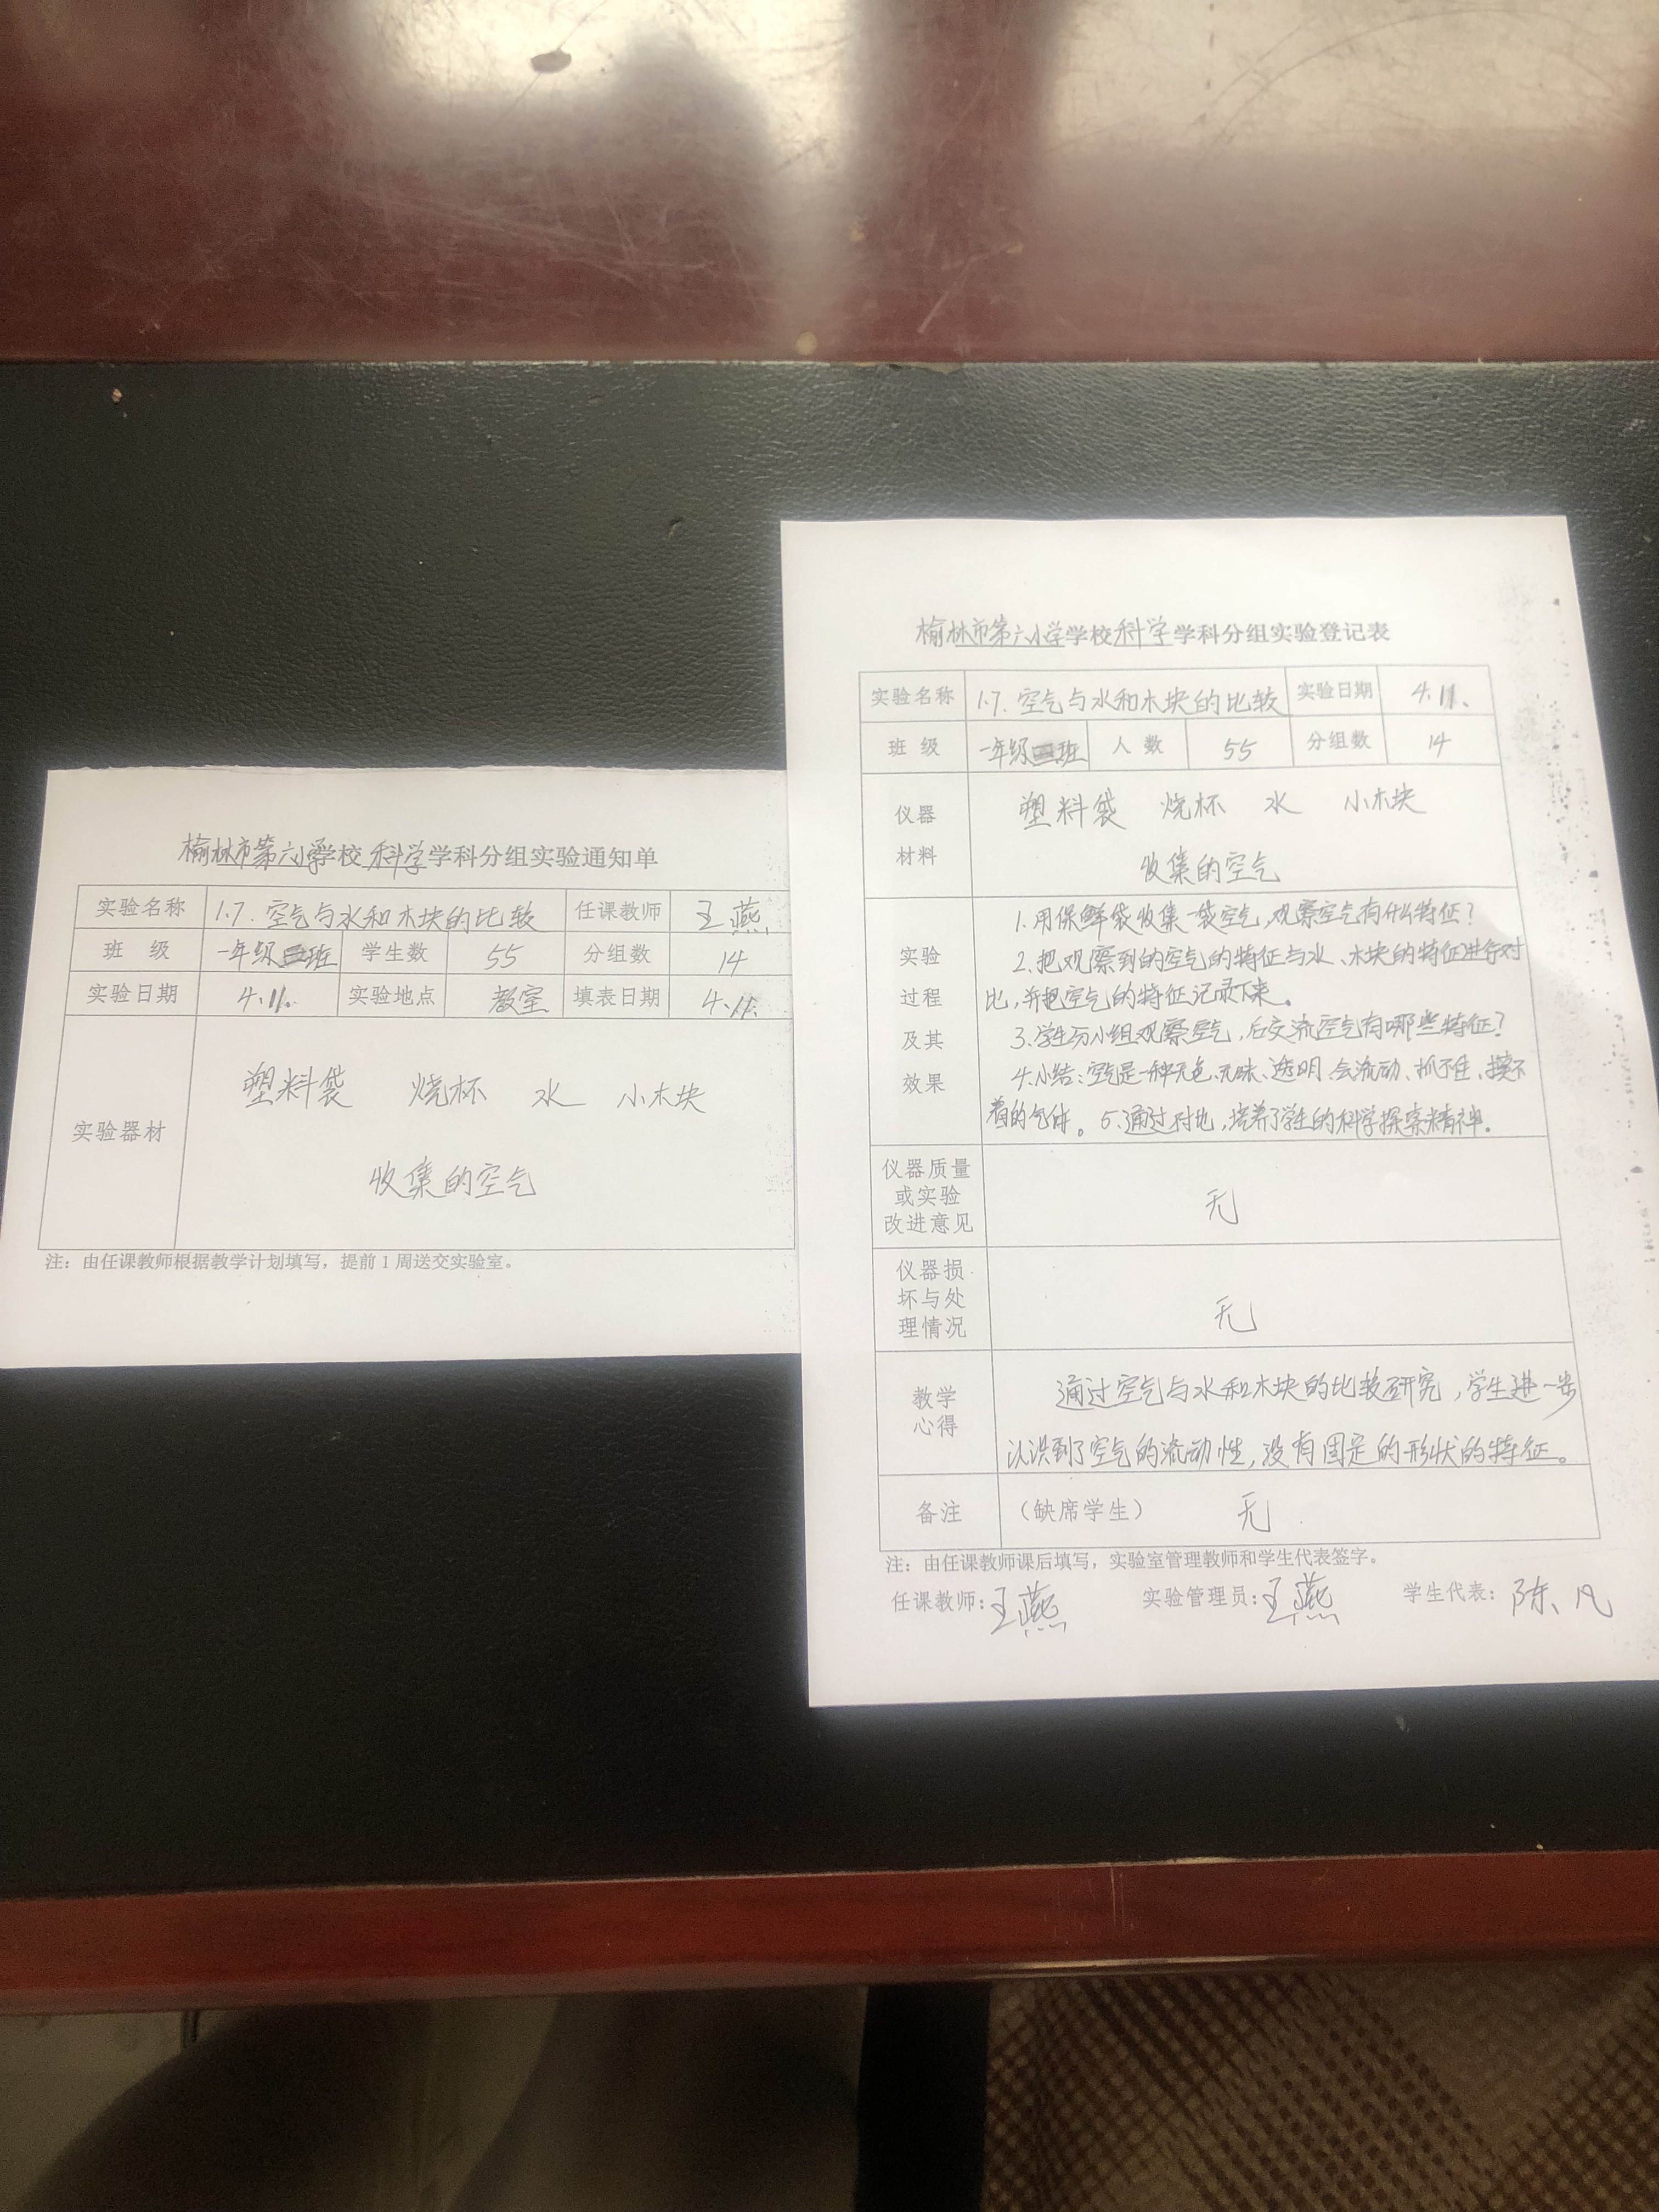 榆林市第六小学学校科学学科分组实验通知单
实验名称 1.7.空气与水和木块的比较 任课教师 王燕
班 级 一年级班 学生数 55 分组数 14
实验日期 4.11. 实验地点 教室 填表日期 4.11.
实验器材
塑料袋 烧杯 水 小木块
收集的空气
注：由任课教师根据教学计划填写，提前1周送交实验室。
榆林市第六小学学校科学学科分组实验登记表
实验名称 1.7.空气与水和木块的比较 实验日期 4.11.
班 级 一年级班 人 数 55 分组数 14
仪器
材料
塑料袋 烧杯 水 小木块
收集的空气
实验
过程
及其
效果
1.用保鲜袋收集一袋空气,观察空气有什么特征?
2.把观察到的空气的特征与水、木块的特征进行对
比,并把空气的特征记录下来。
3.学生分小组观察空气,后交流空气有哪些特征?
4.小结:空气是一种无色、无味、透明、会流动、抓不住、摸不
着的气体。5.通过对比,培养了学生的科学探索精神。
仪器质量
或实验
改进意见
无
仪器损
坏与处
理情况
无
教学
心得
通过空气与水和木块的比较研究,学生进一步
认识到了空气的流动性,没有固定的形状的特征。
备注 （缺席学生） 无
注：由任课教师课后填写，实验室管理教师和学生代表签字。
任课教师:王燕 实验管理员:王燕 学生代表:陈凡